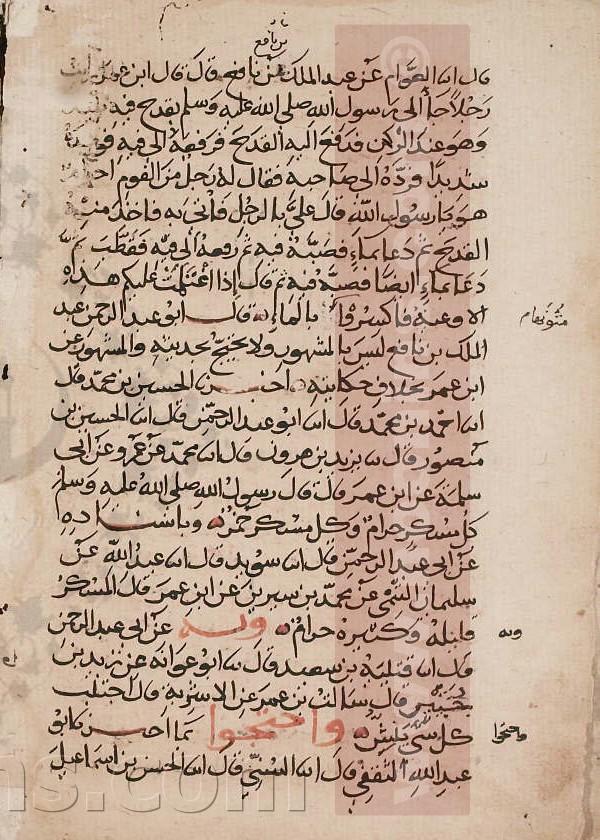 بن نافع
قال انا العوام عن عبد الملك بن نافع قال قال ابن عمر رايت
رجلا جا الى رسول الله صلى الله عليه وسلم بقدح فيه نبيذ
وهو عند الركن فدفع اليه القدح فرفعه الى فيه فوجده
شديدا فرده الى صاحبه فقال له رجل من القوم احرام
هو يا رسول الله قال علي بالرجل فاتي به فاخذ منه
القدح ثم دعا بماء فصبه فيه ثم رفعه الى فيه فقطب ثم
دعا بماء ايضا فصبه فيه ثم قال اذا اغتلمت عليكم هذه
الاوعية فاكسروا بالماء قال ابو عبد الرحمن عبد
متونها
الملك بن نافع ليس بالمشهور ولا يحتج بحديثه والمشهور عن
ابن عمر بخلاف حكايته الحسين بن محمد قال
انا احمد بن محمد قال انا ابو عبد الرحمن قال انا الحسين بن
منصور قال نا يزيد بن هرون قال انا محمد بن عمرو عن ابي
سلمة عن ابن عمر قال قال رسول الله صلى الله عليه وسلم
كل مسكر حرام وكل مسكر خمر وباسناده
عن ابي عبد الرحمن قال انا سويد قال انا عبد الله عن
سليمان التيمي عن محمد بن سيرين عن ابن عمر قال المسكر
قليله وكثيره حرام وبه عن ابي عبد الرحمن
وبه
قال انا قتيبة بن سعيد قال نا ابو عوانة عن زيد بن
جبير قال سالت بن عمر عن الاشربة قال اجتنب
كل شي ينش واحتجوا بما
واحتجوا
عبد الله الثقفي قال انا السني قال انا الحسن بن اسماعيل
ns.com